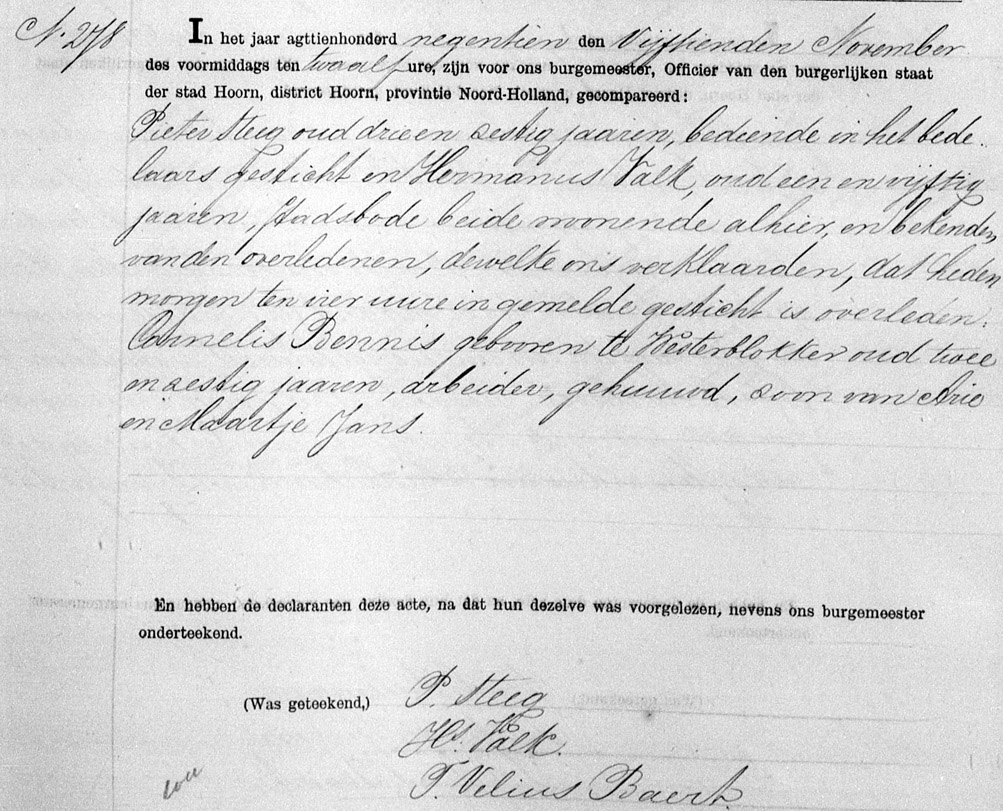 N. 278
In het jaar agttienhonderd negentien den Vijftienden November
des voormiddags ten twaalf ure, zijn voor ons burgemeester, Officier van den burgerlijken staat
der stad Hoorn, district Hoorn, provintie Noord-Holland, gecompareerd:
Pieter Steeg oud drie en zestig jaaren, bediende in het bede-
laars gesticht en Hermanus Valk, oud een en vijftig
jaaren, stadsbode beide woonende alhier, en bekenden
van den overledenen, dewelke ons verklaarden, dat heden
morgen ten vier uure in gemelde gesticht is overleden:
Cornelis Bennis gebooren te Westerblokker oud twee
en zestig jaaren, arbeider, gehuuwd, zoon van Arie
en Maartje Jans.
En hebben de declaranten deze acte, na dat hun dezelve was voorgelezen, nevens ons burgemeester
onderteekend.
(Was geteekend,) P. Steeg
Hs. Valk.
P. Velius Baert